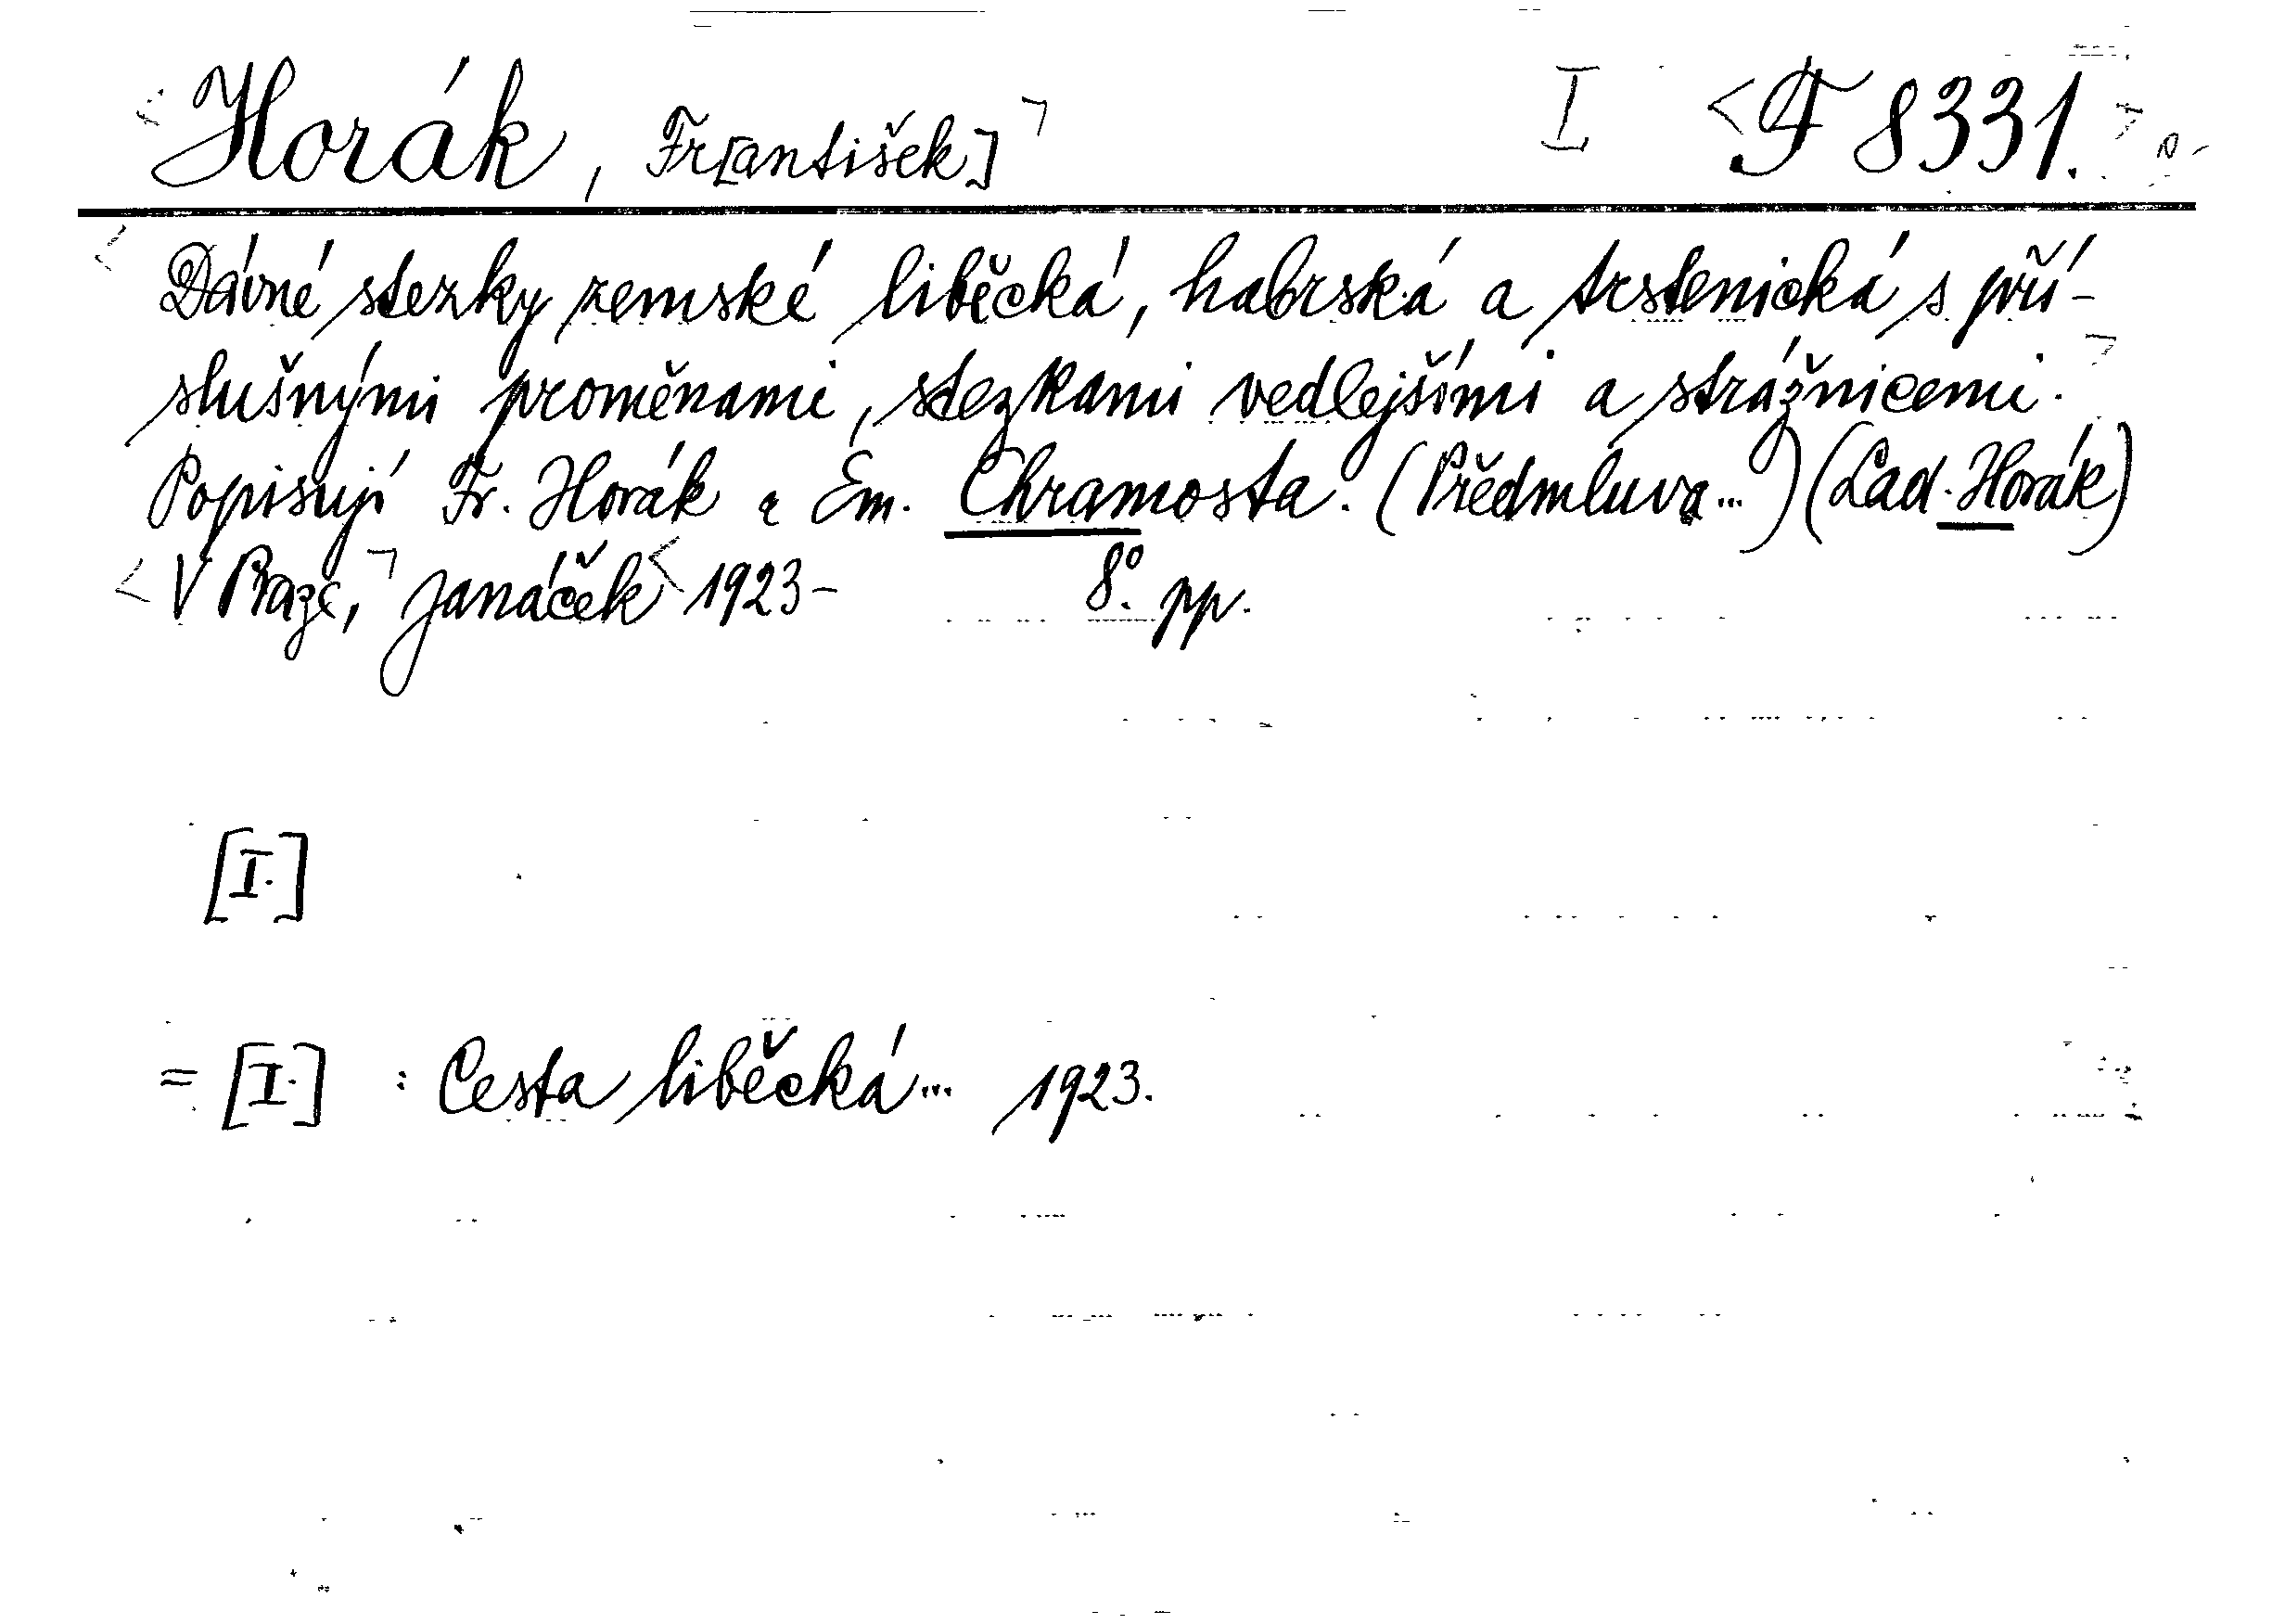 Horák, Fr[antišek] I F 8331.
Dávné stezky zemské liběcká, habrská a trstenická s pří-
slušnými proměnami, stezkami vedlejšími a strážnicemi.
Popisují Fr. Horák a Em. Chramosta. (Předmluva...) (Lad. Horák)
V Praze, Janáček 1923- 8°. pp.
[I.]
= [I.] : Cesta liběcká... 1923.